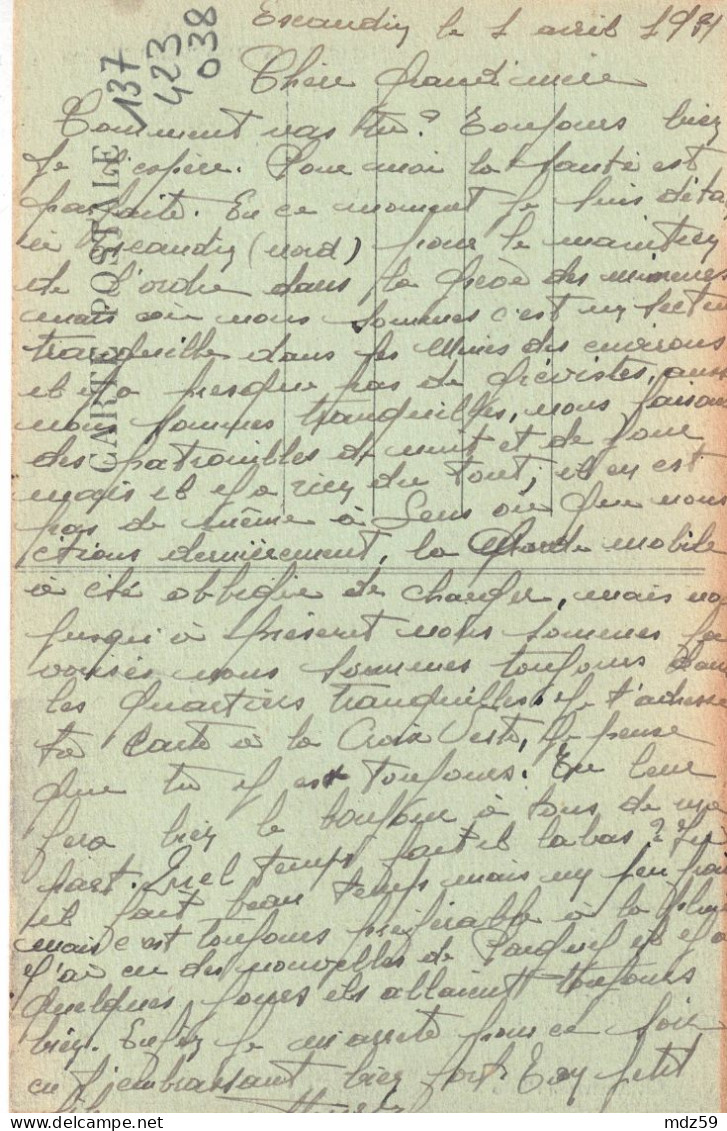 Escaudin le 1 avril 19
Chère grand'mère
Comment vas tu? Toujours bien
je l'espère. Pour moi la santé est
parfaite. En ce moment je suis déta
à Escaudin (nord) pour le maintien
de l'ordre dans la grève des mineurs
mais où nous sommes c'est un secteur
tranquille dans les Mines des environs
il y a presque pas de grévistes, aussi
nous sommes tranquilles, nous faisons
des patrouilles de nuit et de jour
mais il y a rien du tout, il en est
pas de même à Lens où que nous
étions dernièrement, la Garde mobile
à été obligée de charger, mais nous
jusqu'à présent nous sommes fa
vorisés nous sommes toujours dans
les quartiers tranquilles. Je t'adresse
ta carte à la Croix Verte, je pense
que tu y est toujours. Tu leur
fera bien le bonjour à tous de ma
part. Quel temps fait il labas? Ici
il fait beau temps mais un peu frais
mais c'est toujours préférable à la pluie
J'ai eu des nouvelles de il y a
quelques jours ils allaient toujours
bien. Enfin je m'arrête pour ce soir
en t'embrassant bien fort. Ton petit
CARTE POSTALE
137
423
038
mdz59